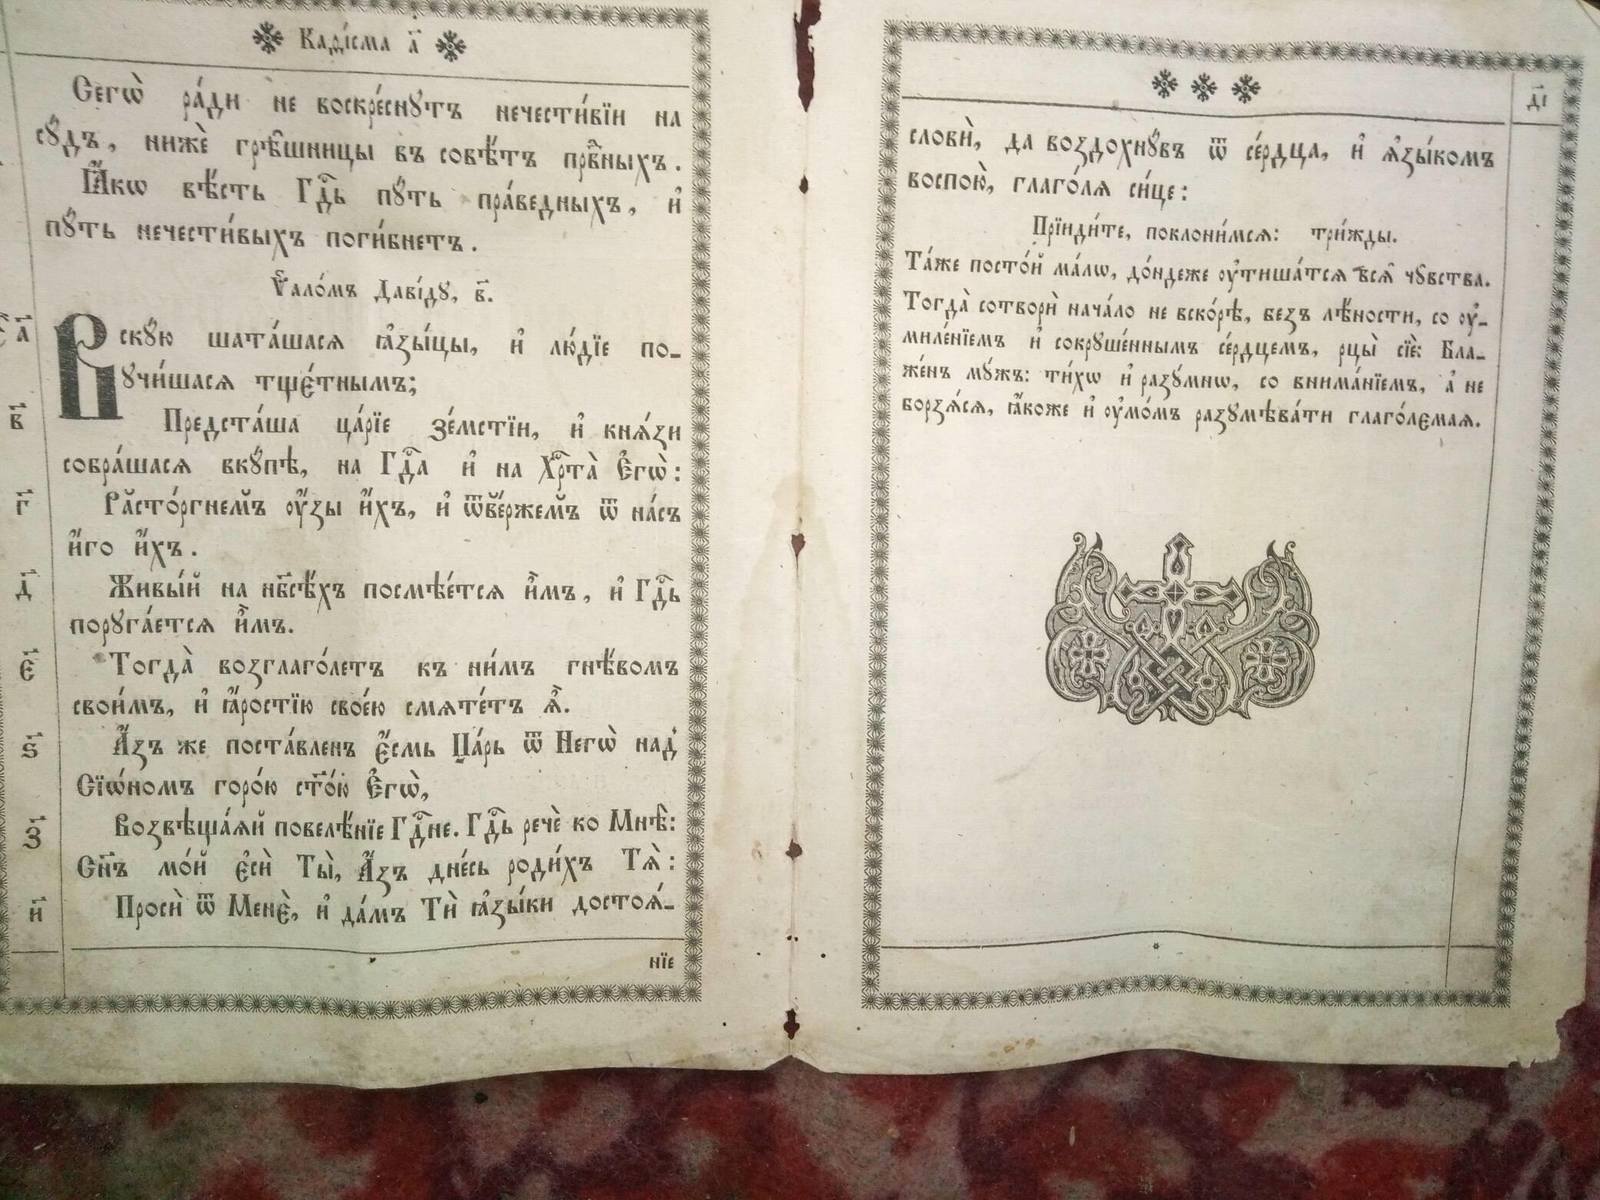 Каѳі́сма а҃
Сегѡ̀ ра́ди не воскре́снутъ нечести́вїи на
сꙋ́дъ, нижѐ грѣ̑шницы въ совѣ́тъ првⷣныхъ.
Ꙗ҆́кѡ вѣ́сть Гдⷭ҇ь пꙋ́ть пра́ведныхъ, и҆
пꙋ́ть нечести́выхъ поги́бнетъ.
Ѱало́мъ Даві́дꙋ, в҃.
а҃ Вскꙋ́ю шата́шася ꙗ҆зы́цы, и҆ лю́дїе по-
ꙋчи́шася тщє́тнымъ;
в҃ Предста́ша ца́рїе зе́мстїи, и҆ кня́зи
собра́шася вкꙋ́пѣ, на Гдⷭ҇а и҆ на Хрⷭ҇та̀ Є҆гѡ̀:
г҃ Расто́ргнемъ ᲂу҆́зы и҆́хъ, и҆ ѿве́ржемъ ѿ на́съ
и҆́го и҆́хъ.
д҃ Живы́й на нб҃сѣ́хъ посмѣе́тся и҆̀мъ, и҆ Гдⷭ҇ь
порꙋга́ется и҆̀мъ.
є҃ Тогда̀ возглаго́летъ къ ни́мъ гнѣ́вомъ
свои́мъ, и҆ ꙗ҆́ростїю свое́ю смяте́тъ ѧ҆̀.
ѕ҃ А҆́зъ же поста́вленъ є҆́смь Ца́рь ѿ Негѡ̀ над̾
Сїѡ́номъ горо́ю ст҃о́ю Є҆гѡ̀,
з҃ Возвѣща́яй повелѣ́нїе Гдⷭ҇не. Гдⷭ҇ь речѐ ко Мнѣ̀:
Сн҃ъ мо́й є҆сѝ Ты̀, А҆́зъ дне́сь роди́хъ Тѧ̀:
и҃ Просѝ ѿ Менє̀, и҆ да́мъ Тѝ ꙗ҆зы́ки достоѧ́-
нїе
д҃і
словѝ, да воздохнꙋ́въ ѿ се́рдца, и҆ ѧ҆зы́комъ
воспою̀, глаго́ля си́це:
Прїиди́те, поклони́мся: три́жды.
Та́же посто́й ма́лѡ, до́ндеже ᲂу҆тиша́тся всѧ̑ чꙋ̑вства.
Тогда̀ сотворѝ нача́ло не вско́рѣ, безъ лѣ́ности, со ᲂу҆-
миле́нїемъ и҆ сокрꙋше́ннымъ се́рдцемъ, рцы̀ сїѐ: Бла-
же́нъ мꙋ́жъ: ти́хѡ и҆ разꙋ́мнѡ, со внима́нїемъ, а҆ не
борзѧ́ся, ꙗ҆́коже и҆ ᲂу҆мо́мъ разꙋмѣва́ти глаго́лемая.